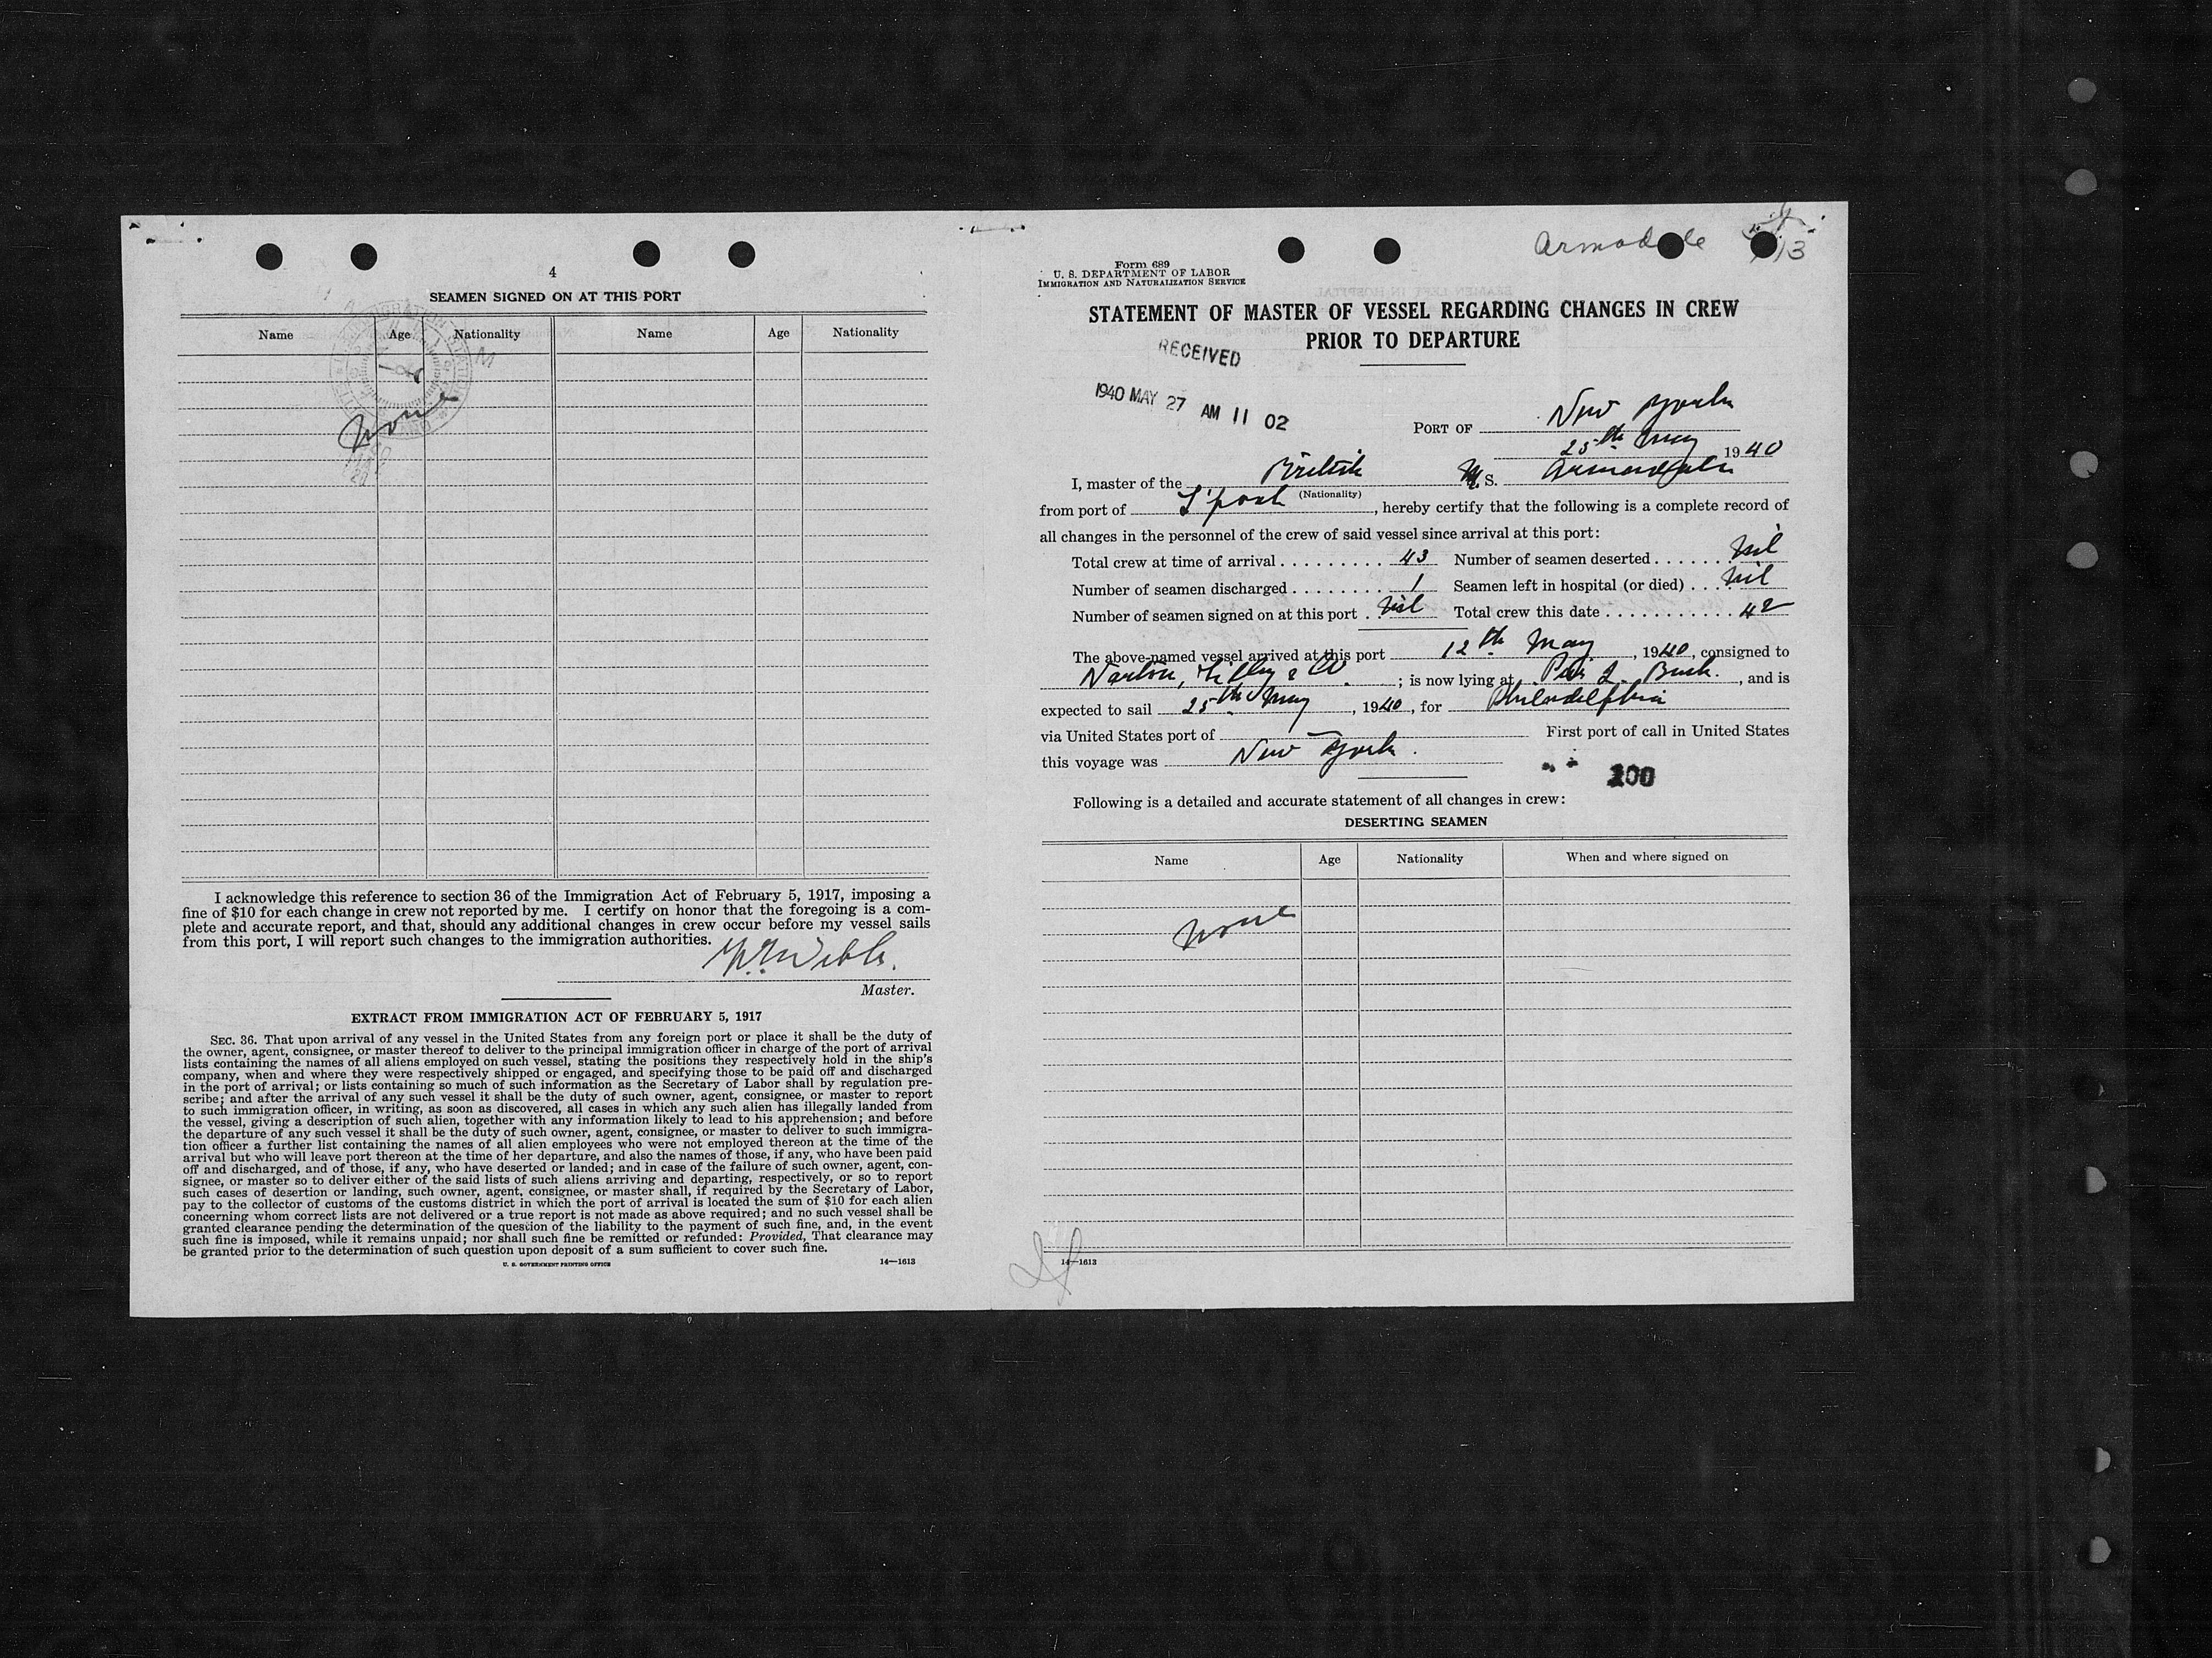 4
SEAMEN SIGNED ON AT THIS PORT
Name Age Nationality Name Age Nationality
None
I acknowledge this reference to section 36 of the Immigration Act of February 5, 1917, imposing a
fine of $10 for each change in crew not reported by me. I certify on honor that the foregoing is a com-
plete and accurate report, and that, should any additional changes in crew occur before my vessel sails
from this port, I will report such changes to the immigration authorities.
Master.
EXTRACT FROM IMMIGRATION ACT OF FEBRUARY 5, 1917
SEC. 36. That upon arrival of any vessel in the United States from any foreign port or place it shall be the duty of
the owner, agent, consignee, or master thereof to deliver to the principal immigration officer in charge of the port of arrival
lists containing the names of all aliens employed on such vessel, stating the positions they respectively hold in the ship's
company, when and where they were respectively shipped or engaged, and specifying those to be paid off and discharged
in the port of arrival; or lists containing so much of such information as the Secretary of Labor shall by regulation pre-
scribe; and after the arrival of any such vessel it shall be the duty of such owner, agent, consignee, or master to report
to such immigration officer, in writing, as soon as discovered, all cases in which any such alien has illegally landed from
the vessel, giving a description of such alien, together with any information likely to lead to his apprehension; and before
the departure of any such vessel it shall be the duty of such owner, agent, consignee, or master to deliver to such immigra-
tion officer a further list containing the names of all alien employees who were not employed thereon at the time of the
arrival but who will leave port thereon at the time of her departure, and also the names of those, if any, who have been paid
off and discharged, and of those, if any, who have deserted or landed; and in case of the failure of such owner, agent, con-
signee, or master so to deliver either of the said lists of such aliens arriving and departing, respectively, or so to report
such cases of desertion or landing, such owner, agent, consignee, or master shall, if required by the Secretary of Labor,
pay to the collector of customs of the customs district in which the port of arrival is located the sum of $10 for each alien
concerning whom correct lists are not delivered or a true report is not made as above required; and no such vessel shall be
granted clearance pending the determination of the question of the liability to the payment of such fine, and, in the event
such fine is imposed, while it remains unpaid; nor shall such fine be remitted or refunded: Provided, That clearance may
be granted prior to the determination of such question upon deposit of a sum sufficient to cover such fine.
U. S. GOVERNMENT PRINTING OFFICE 14—1613
Form 689
U. S. DEPARTMENT OF LABOR
IMMIGRATION AND NATURALIZATION SERVICE
STATEMENT OF MASTER OF VESSEL REGARDING CHANGES IN CREW
PRIOR TO DEPARTURE
RECEIVED
1940 MAY 27 AM 11 02
PORT OF New York
25th May 1940
I, master of the British M. S. Armadale
(Nationality)
from port of L'pool, hereby certify that the following is a complete record of
all changes in the personnel of the crew of said vessel since arrival at this port:
Total crew at time of arrival . . . . . . . . . . 43 Number of seamen deserted . . . . . . . Nil
Number of seamen discharged . . . . . . . . 1 Seamen left in hospital (or died) . . . . Nil
Number of seamen signed on at this port . . Nil Total crew this date . . . . . . . . . . . 42
The above-named vessel arrived at this port 12th May, 1940, consigned to
Norton, Lilly & Co. ; is now lying at Pier 2 Bush., and is
expected to sail 25th May, 1940, for Philadelphia
via United States port of — First port of call in United States
this voyage was New York.
200
Following is a detailed and accurate statement of all changes in crew:
DESERTING SEAMEN
Name Age Nationality When and where signed on
None
14—1613